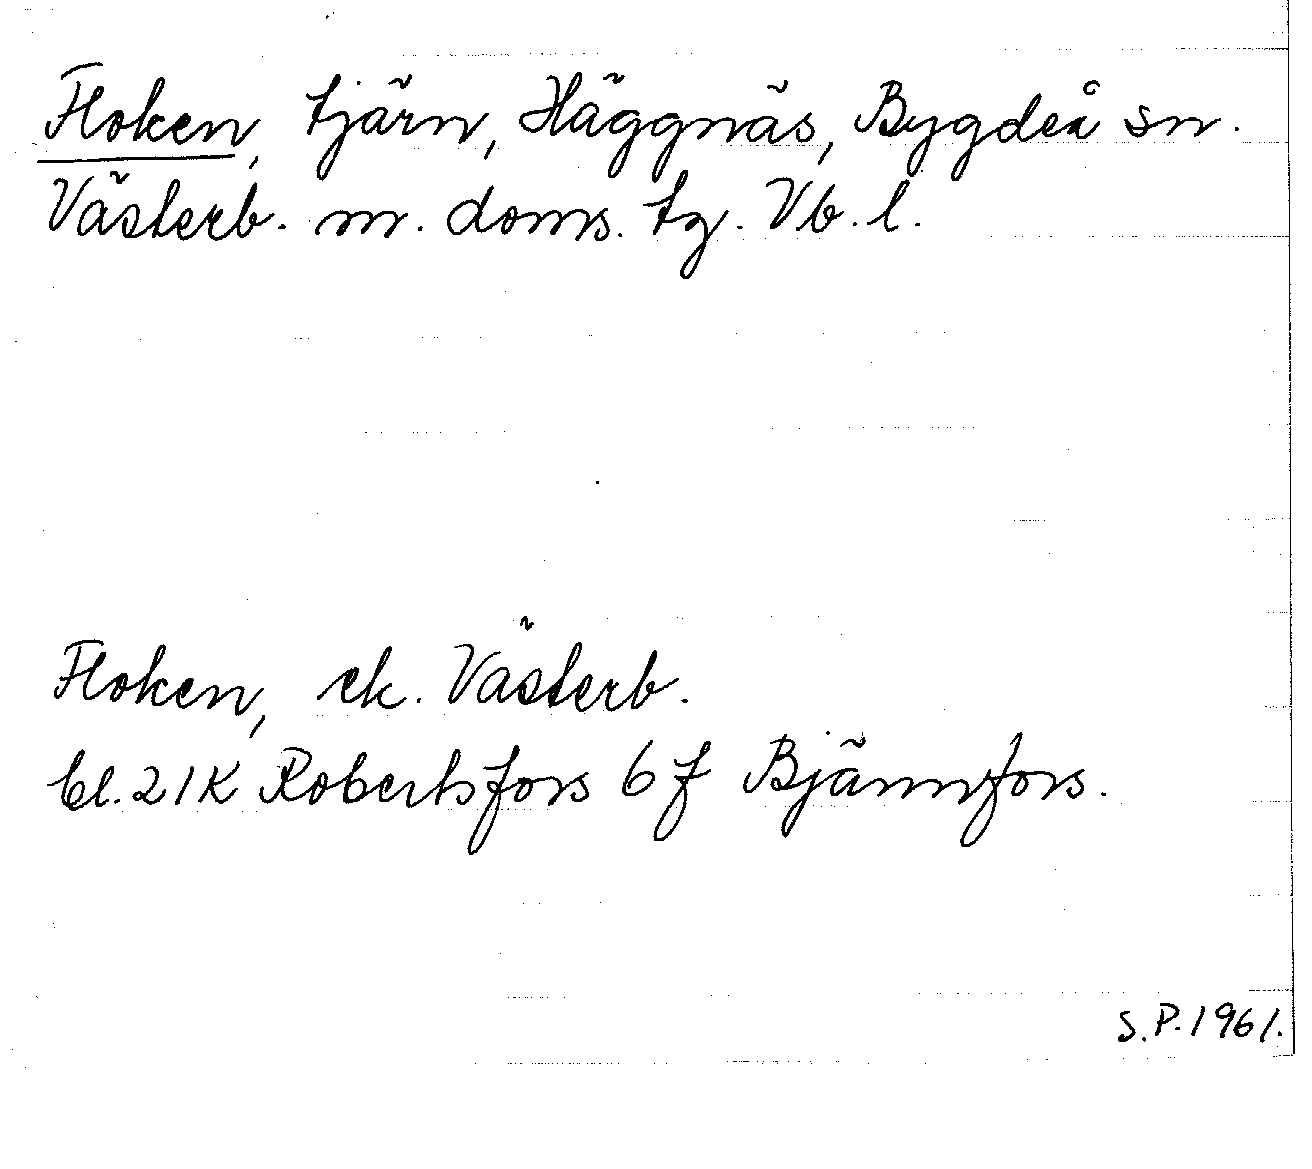 Floken, tjärn, Häggnäs, Bygdeå sn.
Västerb. m. doms. tg. Vb. l.
Floken, ek. Västerb.
bl. 21K Robertsfors 6 f Bjännfors.
S.P. 1961.